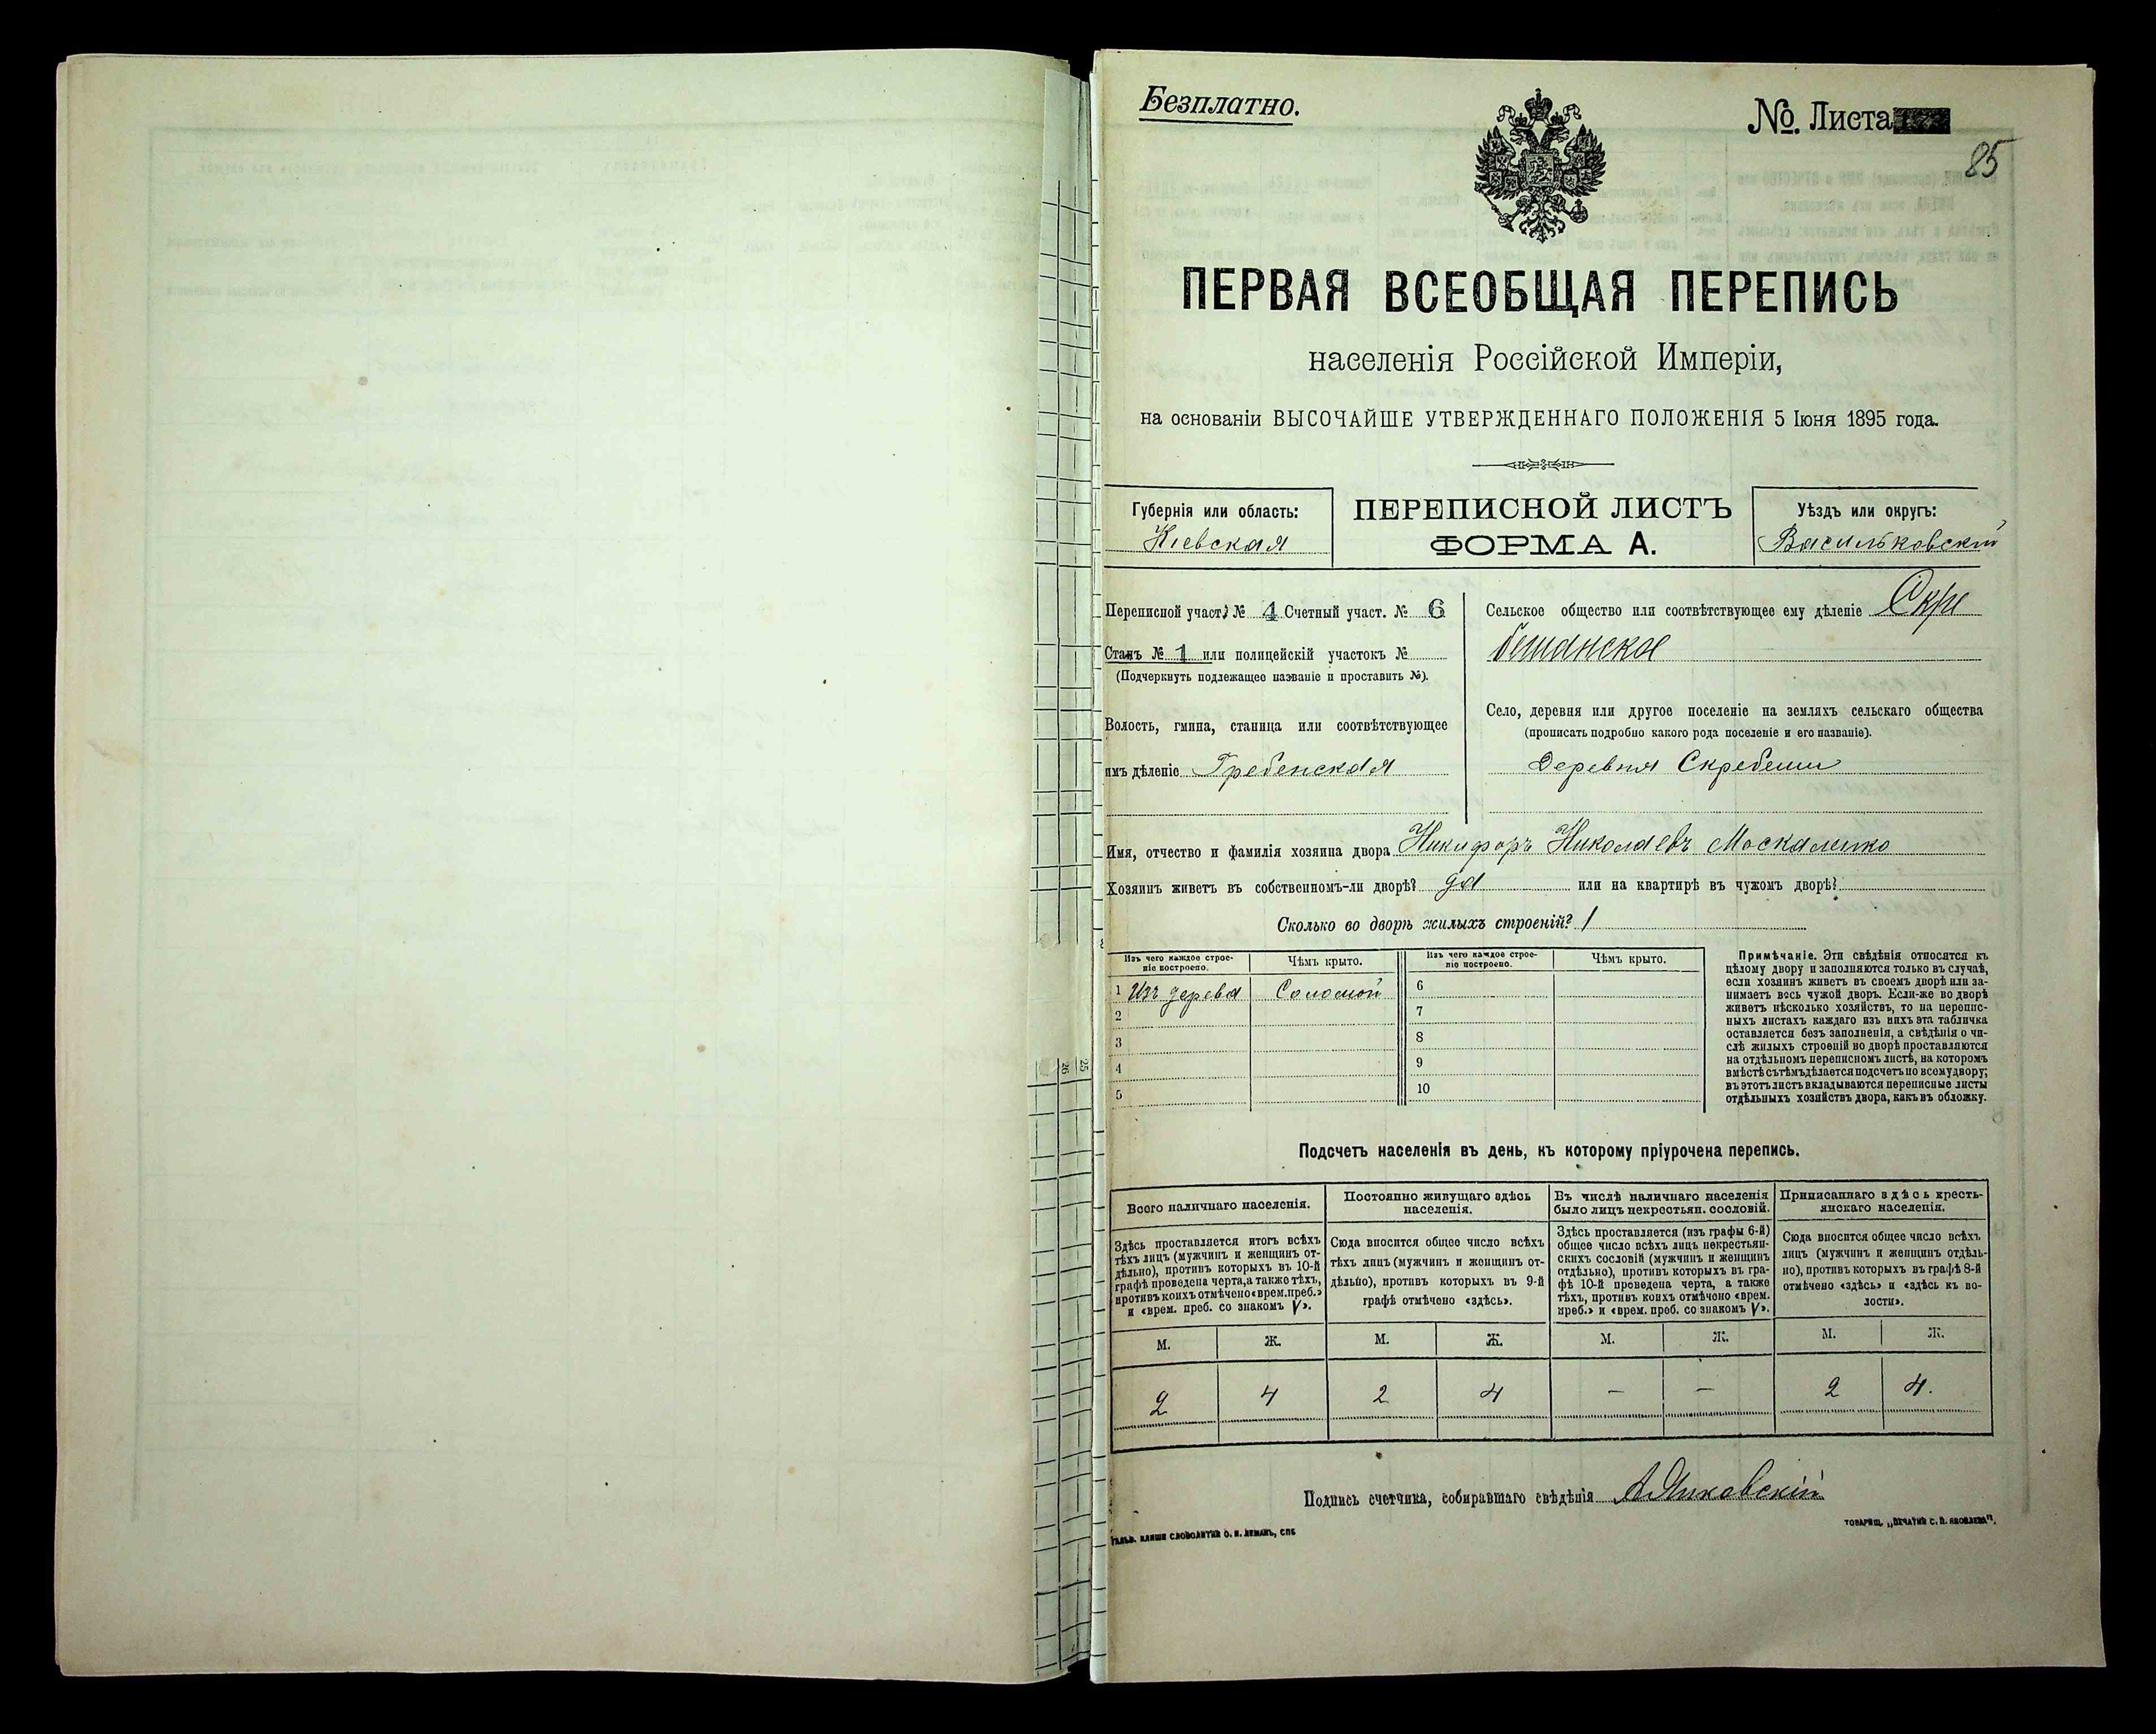 Безплатно.
№. Листа
85
ПЕРВАЯ ВСЕОБЩАЯ ПЕРЕПИСЬ
населенія Россійской Имперіи,
на основаніи ВЫСОЧАЙШЕ УТВЕРЖДЕННАГО ПОЛОЖЕНІЯ 5 Іюня 1895 года.
Губернія или область:
Кіевская
ПЕРЕПИСНОЙ ЛИСТЪ
ФОРМА А.
Уѣздъ или округъ:
Васильковскій
Переписной участ. № 4 Счетный участ. № 6
Станъ № 1 или полицейскій участокъ №
(Подчеркнуть подлежащее названіе и проставить №).
Волость, гмина, станица или соотвѣтствующее
имъ дѣленіе Гребенская
Сельское общество или соотвѣтствующее ему дѣленіе Скре
бешанское
Село, деревня или другое поселеніе на земляхъ сельскаго общества
(прописать подробно какого рода поселеніе и его названіе).
Деревня Скребеши
Имя, отчество и фамилія хозяина двора Никифоръ Николаевъ Москаленко
Хозяинъ живетъ въ собственномъ-ли дворѣ? да или на квартирѣ въ чужомъ дворѣ?
Сколько во дворѣ жилыхъ строеній? 1
Изъ чего каждое строе-
ніе построено.
Чѣмъ крыто.
1 Изъ дерева Соломой
2
3
4
5
Изъ чего каждое строе-
ніе построено.
Чѣмъ крыто.
6
7
8
9
10
Примѣчаніе. Эти свѣдѣнія относятся къ
цѣлому двору и заполняются только въ случаѣ,
если хозяинъ живетъ въ своемъ дворѣ или за-
нимаетъ весь чужой дворъ. Если-же во дворѣ
живетъ нѣсколько хозяйствъ, то на перепис-
ныхъ листахъ каждаго изъ нихъ эта табличка
оставляется безъ заполненія, а свѣдѣнія о чи-
слѣ жилыхъ строеній во дворѣ проставляются
на отдѣльномъ переписномъ листѣ, на которомъ
вмѣстѣ съ тѣмъ дѣлается подсчетъ по всему двору;
въ этотъ листъ вкладываются переписные листы
отдѣльныхъ хозяйствъ двора, какъ въ обложку.
Подсчетъ населенія въ день, къ которому пріурочена перепись.
Всего наличнаго населенія.
Здѣсь проставляется итогъ всѣхъ
тѣхъ лицъ (мужчинъ и женщинъ от-
дѣльно), противъ которыхъ въ 10-й
графѣ проведена черта, а также тѣхъ,
противъ коихъ отмѣчено «врем. преб.»
и «врем. преб. со знакомъ V».
М. Ж.
2 4
Постоянно живущаго здѣсь
населенія.
Сюда вносится общее число всѣхъ
тѣхъ лицъ (мужчинъ и женщинъ от-
дѣльно), противъ которыхъ въ 9-й
графѣ отмѣчено «здѣсь».
М. Ж.
2 4
Въ числѣ наличнаго населенія
было лицъ некрестьян. сословій.
Здѣсь проставляется (изъ графы 6-й)
общее число всѣхъ лицъ некрестьян-
скихъ сословій (мужчинъ и женщинъ
отдѣльно), противъ которыхъ въ гра-
фѣ 10-й проведена черта, а также
тѣхъ, противъ коихъ отмѣчено «врем.
преб.» и «врем. преб. со знакомъ V».
М. Ж.
— —
Приписаннаго здѣсь кресть-
янскаго населенія.
Сюда вносится общее число всѣхъ
лицъ (мужчинъ и женщинъ отдѣль-
но), противъ которыхъ въ графѣ 8-й
отмѣчено «здѣсь» и «здѣсь къ во-
лости».
М. Ж.
2 4.
Подпись счетчика, собиравшаго свѣдѣнія
ГАЛЬВ. КЛИШЕ СЛОВОЛИТНИ О. И. ЛЕМАНЪ, СПБ
ТОВАРИЩ. „ПЕЧАТНЯ С. П. ЯКОВЛЕВА".
25
26